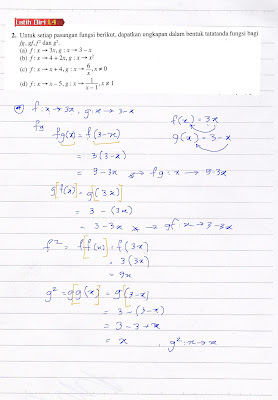 Latih Diri 1.4
2. Untuk setiap pasangan fungsi berikut, dapatkan ungkapan dalam bentuk tatatanda fungsi bagi
fg, gf, f² dan g².
(a) f : x → 3x, g : x → 3 – x
(b) f : x → 4 + 2x, g : x → x²
(c) f : x → x + 4, g : x → 6/x, x ≠ 0
(d) f : x → x – 5, g : x → 1/(x – 1), x ≠ 1
a) f : x → 3x, g : x → 3 - x
f(x) = 3x
fg
g(x) = 3 - x
fg(x) = f(3-x)
= 3(3-x)
= 9 - 3x ⇒ fg : x → 9-3x
g[f(x)] = g(3x)
= 3 - (3x)
= 3 - 3x → gf : x → 3-3x
f² = f[f(x)] = f(3x)
= 3(3x)
= 9x
g² = g[g(x)] = g(3-x)
= 3 - (3-x)
= 3 - 3 + x
= x , g² : x → x